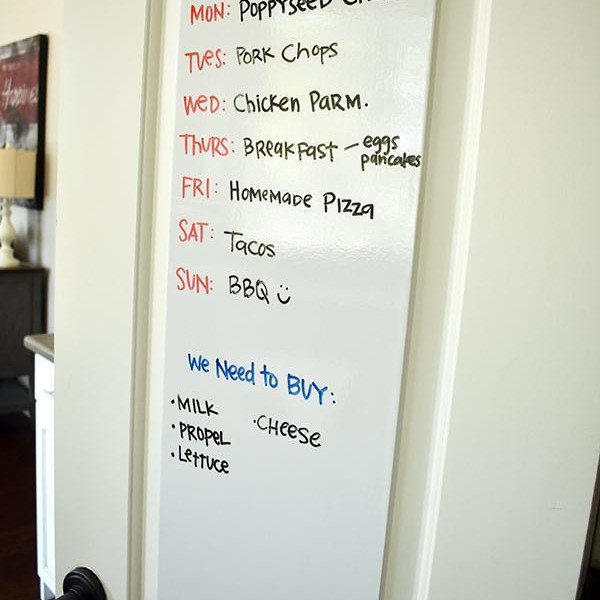 MON: POPPYSEED
TUES: PORK CHOPS
WED: CHICKEN PARM.
THURS: BREAKFAST - eggs
pancakes
FRI: HOMEMADE PIZZA
SAT: TACOS
SUN: BBQ
We Need to BUY:
• MILK
• PROPEL
• LETTUCE
• CHEESE